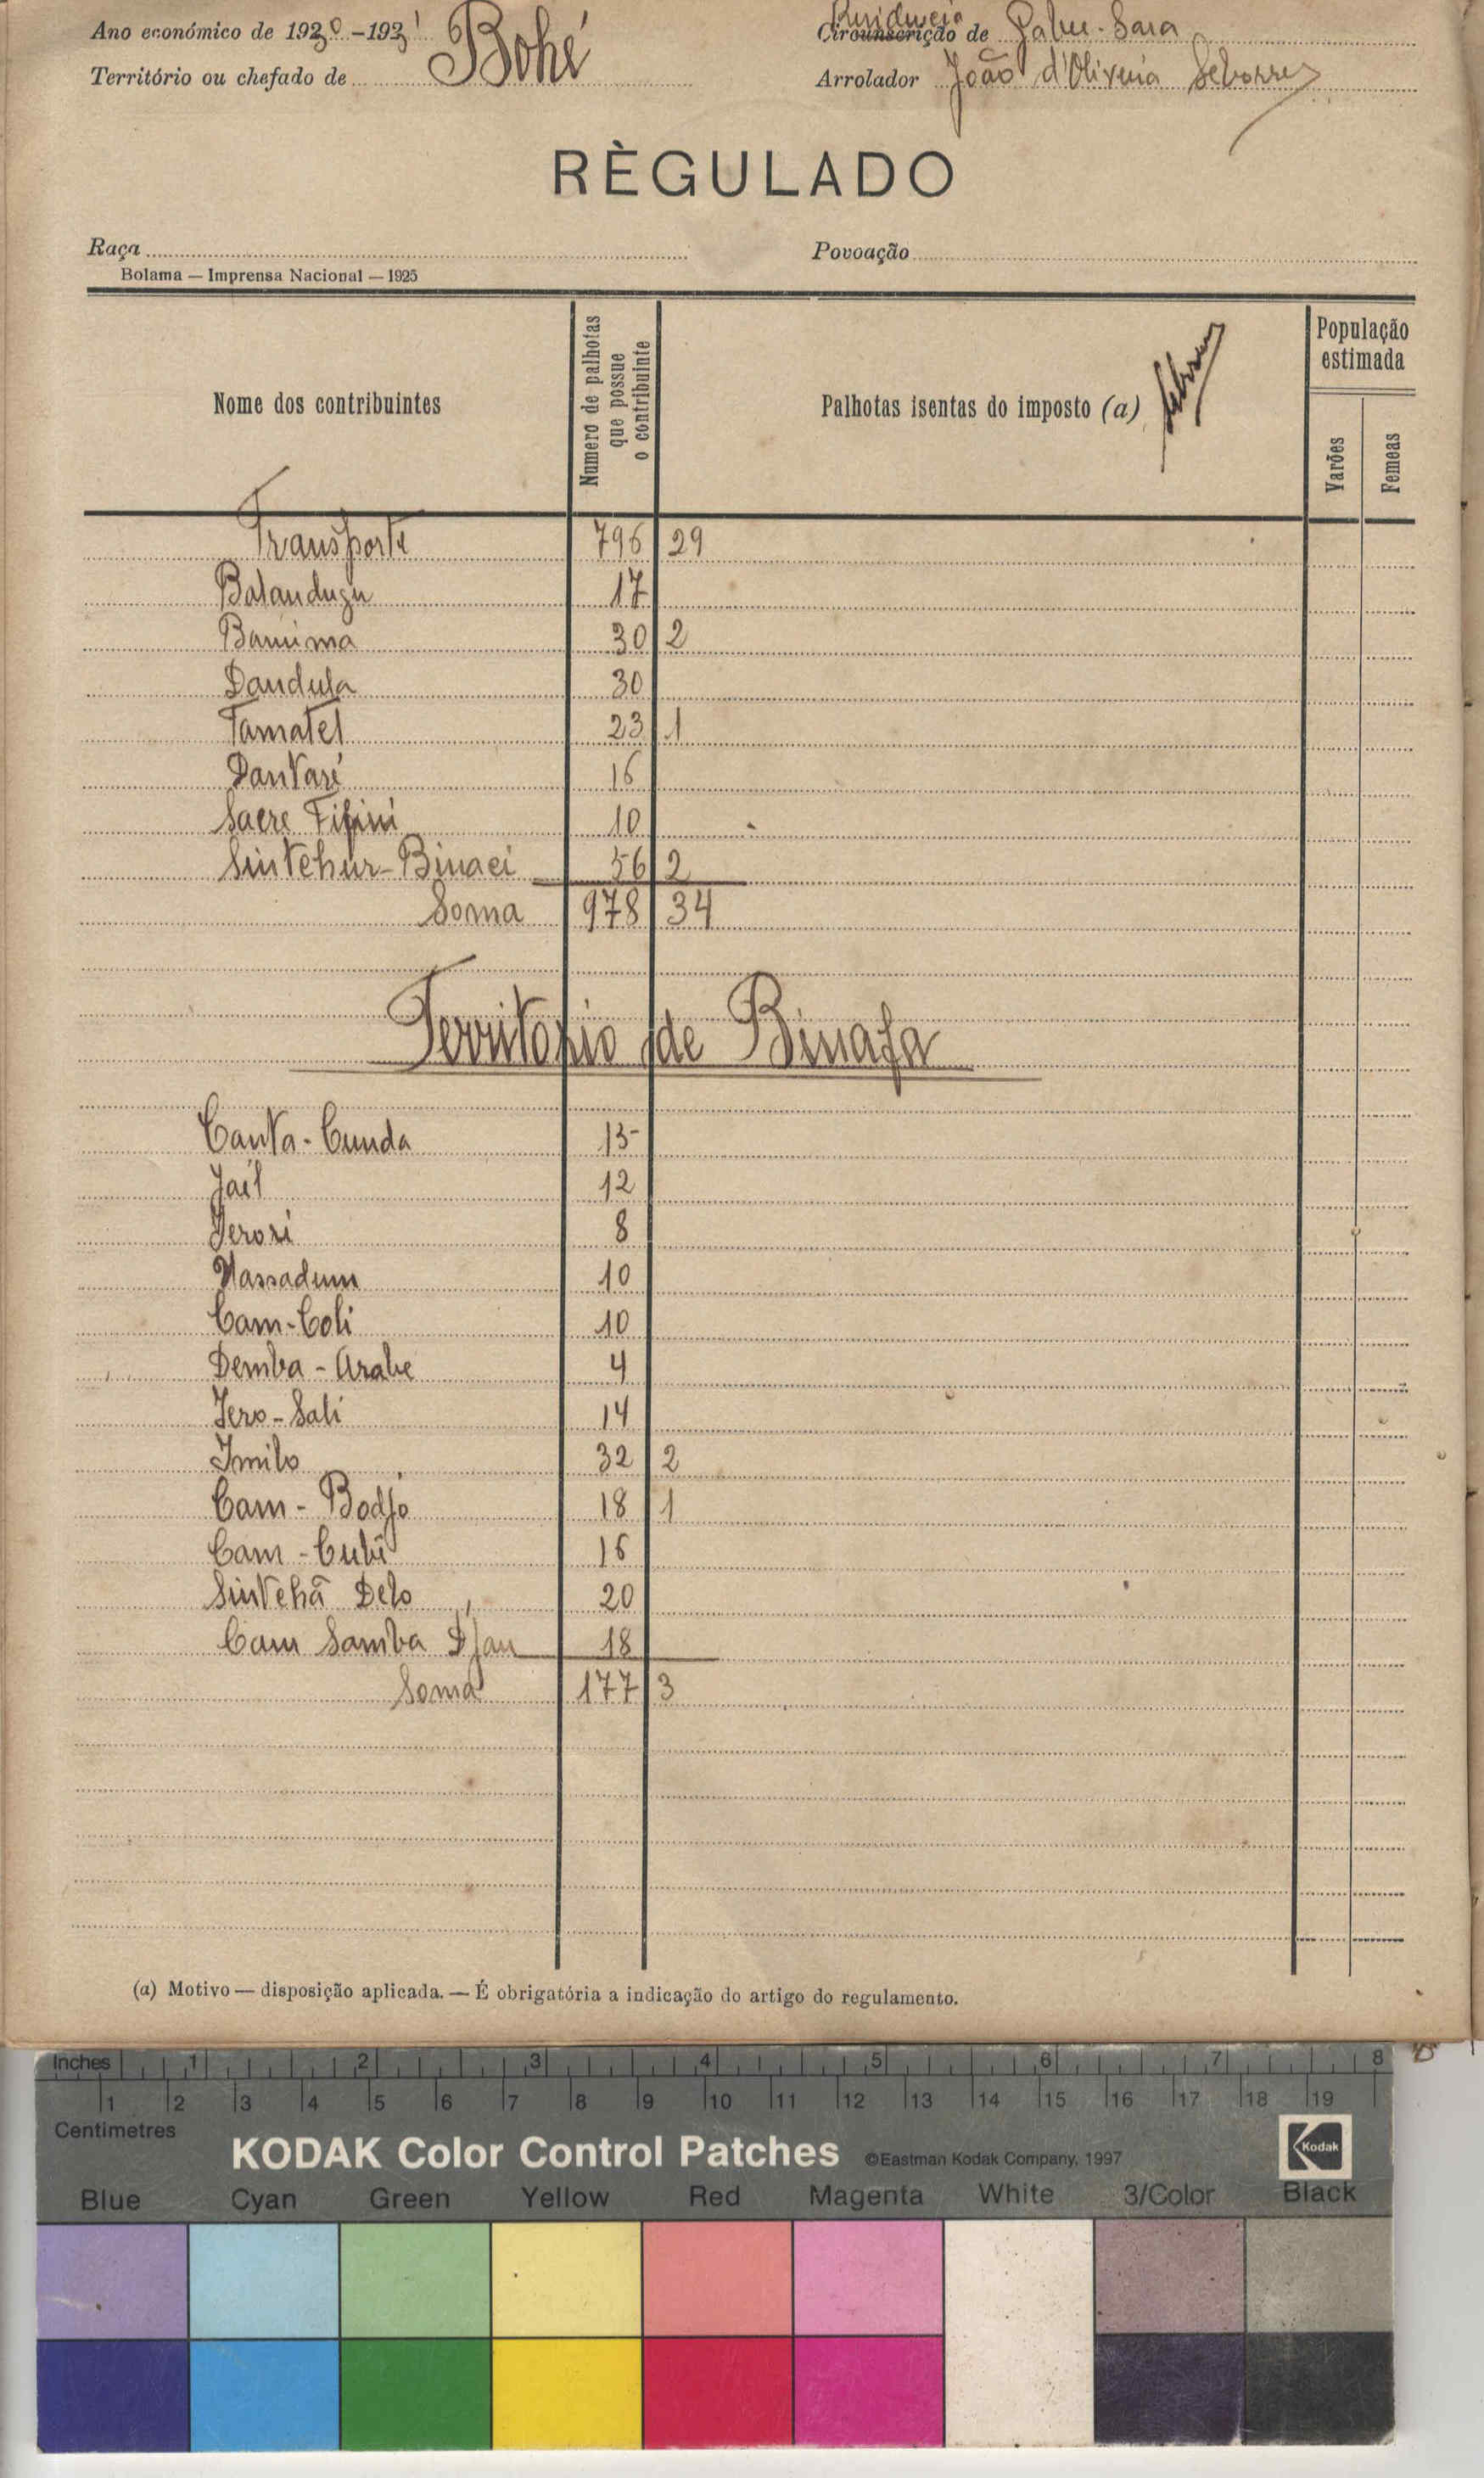 Residencia
Ano económico de 1930-1931 Circunscrição de Gabu-Sara
Território ou chefado de Bohé Arrolador João d'Oliveira
RÈGULADO
Raça Povoação
Bolama — Imprensa Nacional — 1925
Nome dos contribuintes
Numero de palhotas que possue o contribuinte
Palhotas isentas do imposto (a)
População estimada
Varões
Femeas
Transporte 796 29
Balandugu 17
Banima 30 2
Dandula 30
Tamatel 23 1
Dantaré 16
Sacre Fifini 10
Sintehur-Binaci 56 2
Soma 978 34
Territorio de Binafa
Canta-Cunda 15
Jail 12
Jerori 8
Massadum 10
Cam-Coli 10
Demba-Arabe 4
Jero-Sali 14
Imilo 32 2
Cam-Bodjó 18 1
Cam-Cubi 16
Sintehã Delo 20
Cam Samba D'jau 18
Soma 177 3
(a) Motivo — disposição aplicada. — É obrigatória a indicação do artigo do regulamento.
Inches 1 2 3 4 5 6 7 8
1 2 3 4 5 6 7 8 9 10 11 12 13 14 15 16 17 18 19
Centimetres
KODAK Color Control Patches ©Eastman Kodak Company, 1997 Kodak
Blue Cyan Green Yellow Red Magenta White 3/Color Black